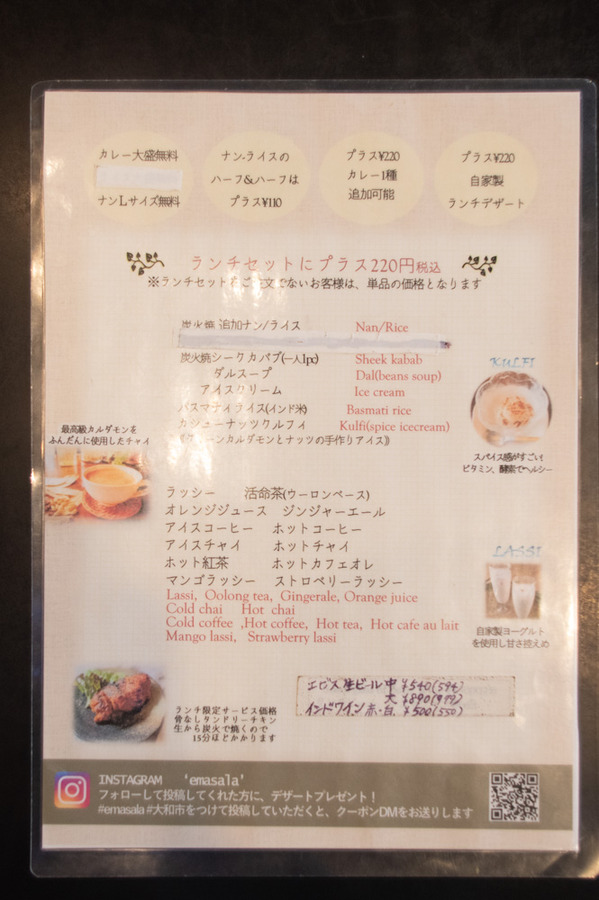 カレー大盛無料
ナンLサイズ無料
ナン・ライスの
ハーフ&ハーフは
プラス¥110
プラス¥220
カレー1種
追加可能
プラス¥220
自家製
ランチデザート
ランチセットにプラス220円税込
※ランチセットをご注文でないお客様は、単品の価格となります
炭火焼 追加ナン/ライス Nan/Rice
炭火焼シークカバブ(一人1pc) Sheek kabab
ダルスープ Dal(beans soup)
アイスクリーム Ice cream
バスマティライス(インド米) Basmati rice
カシューナッツクルフィ Kulfi(spice icecream)
(グリーンカルダモンとナッツの手作りアイス)
KULFI
スパイス感がすごい!
ビタミン、酵素でヘルシー
最高級カルダモンを
ふんだんに使用したチャイ
ラッシー 活命茶(ウーロンベース)
オレンジジュース ジンジャーエール
アイスコーヒー ホットコーヒー
アイスチャイ ホットチャイ
ホット紅茶 ホットカフェオレ
マンゴラッシー ストロベリーラッシー
Lassi, Oolong tea, Gingerale, Orange juice
Cold chai Hot chai
Cold coffee ,Hot coffee, Hot tea, Hot cafe au lait
Mango lassi, Strawberry lassi
LASSI
自家製ヨーグルト
を使用し甘さ控えめ
ランチ限定サービス価格
骨なしタンドリーチキン
生から炭火で焼くので
15分ほどかかります
エビス生ビール 中 ¥540(594)
大 ¥890(979)
インドワイン 赤・白 ¥500(550)
INSTAGRAM 'emasala'
フォローして投稿してくれた方に、デザートプレゼント!
#emasala #大和市をつけて投稿していただくと、クーポンDMをお送りします